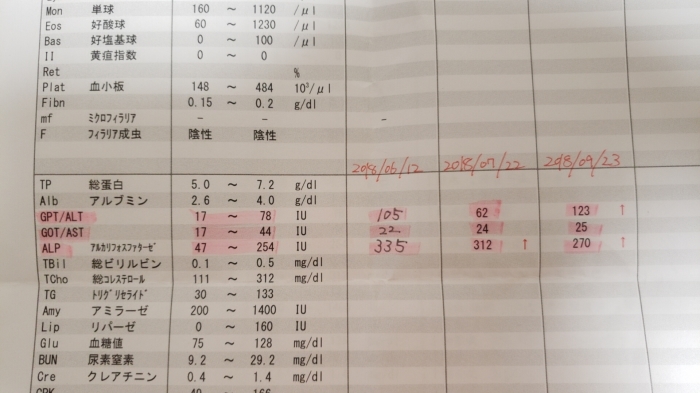 Mon 単球 160 ～ 1120 /μl
Eos 好酸球 60 ～ 1230 /μl
Bas 好塩基球 0 ～ 100 /μl
II 黄疸指数 0 ～ 0
Ret %
Plat 血小板 148 ～ 484 10³/μl
Fibn 0.15 ～ 0.2 g/dl
mf ミクロフィラリア - - -
F フィラリア成虫 陰性 陰性
2018/06/12 2018/07/22 2018/09/23
TP 総蛋白 5.0 ～ 7.2 g/dl
Alb アルブミン 2.6 ～ 4.0 g/dl
GPT/ALT 17 ～ 78 IU 105 62 123 ↑
GOT/AST 17 ～ 44 IU 22 24 25
ALP アルカリフォスファターゼ 47 ～ 254 IU 335 312 ↑ 270 ↑
TBil 総ビリルビン 0.1 ～ 0.5 mg/dl
TCho 総コレステロール 111 ～ 312 mg/dl
TG トリグリセライド 30 ～ 133
Amy アミラーゼ 200 ～ 1400 IU
Lip リパーゼ 0 ～ 160 IU
Glu 血糖値 75 ～ 128 mg/dl
BUN 尿素窒素 9.2 ～ 29.2 mg/dl
Cre クレアチニン 0.4 ～ 1.4 mg/dl